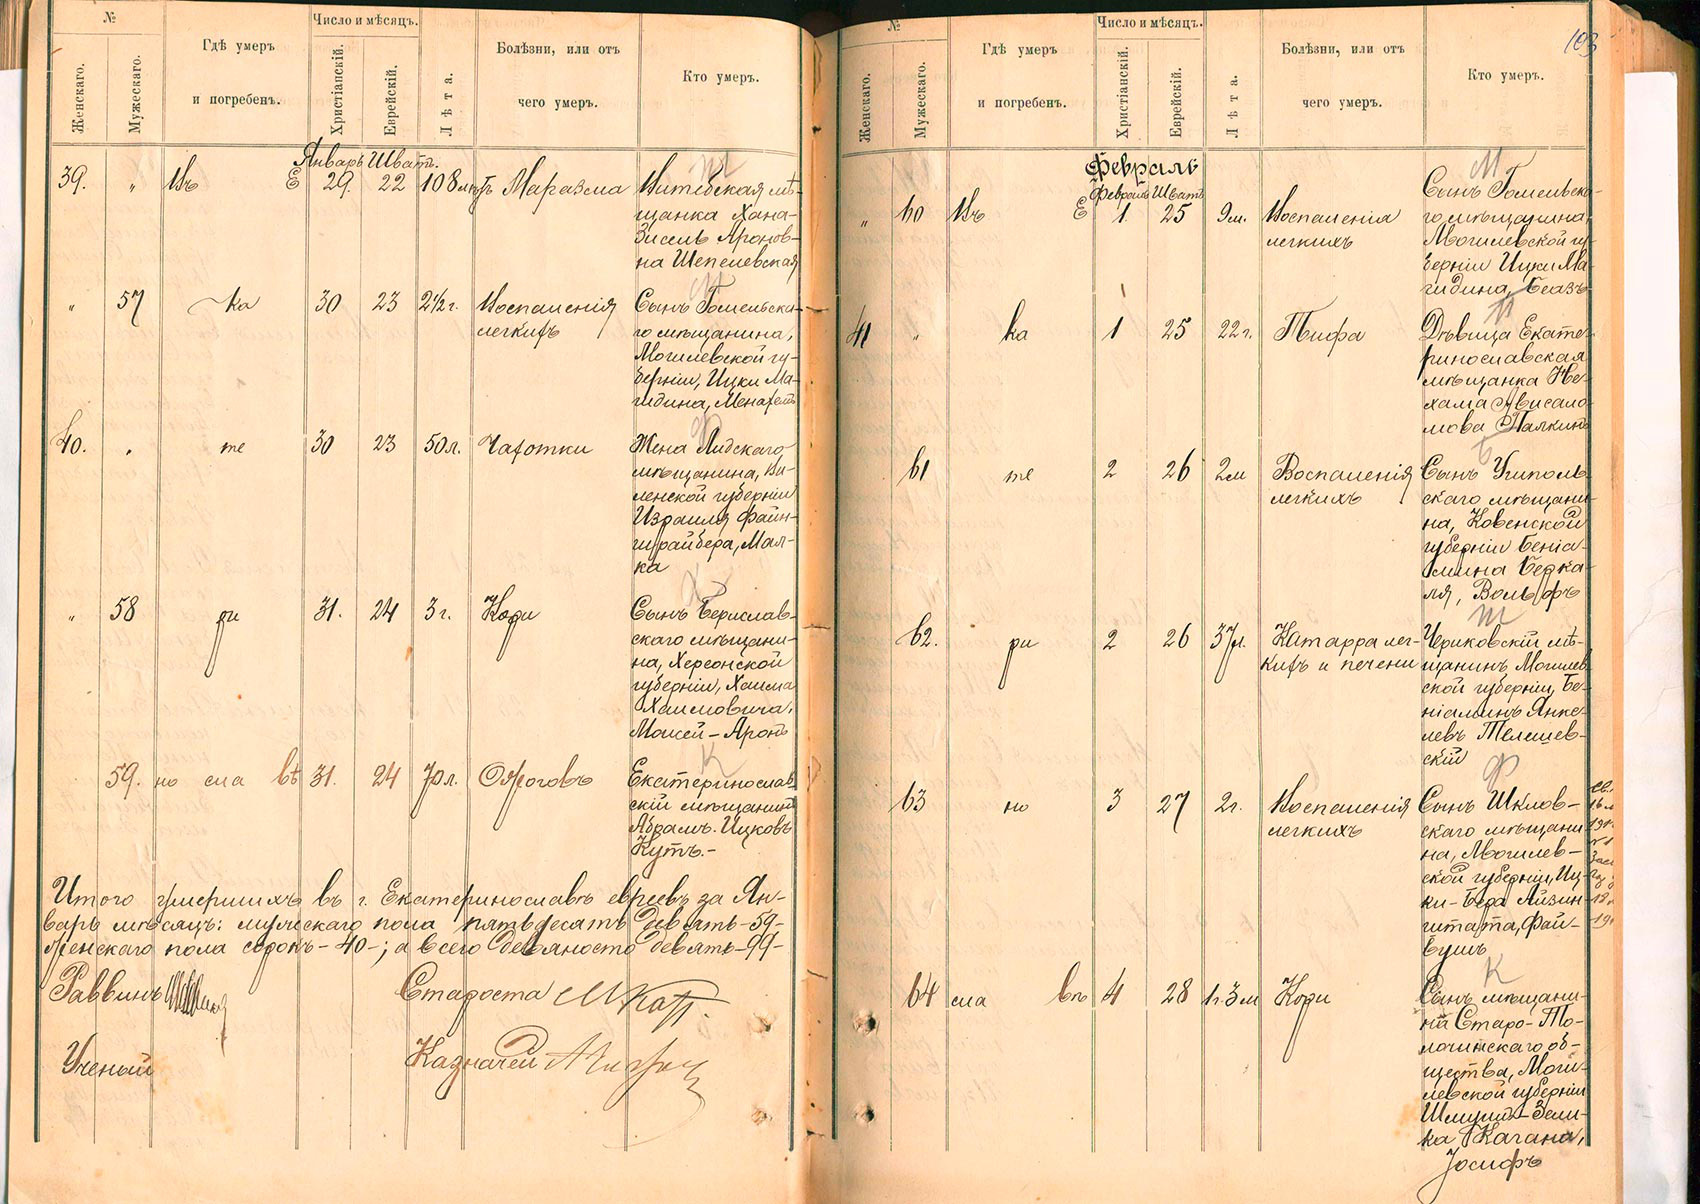 №
Женскаго.
Мужескаго.
Гдѣ умеръ
и погребенъ.
Число и мѣсяцъ.
Христіанскій.
Еврейскій.
Лѣта.
Болѣзни, или отъ
чего умеръ.
Кто умеръ.
Январь Шватъ.
39. „ Въ Е 29. 22 108 лѣтъ Маразма
Витебская мѣ-
щанка Хана-
Зисель Аронов-
на Шепелевская
„ 57 ка 30 23 2½ г. Воспаленія
легкихъ
Сынъ Гомельска-
го мѣщанина,
Могилевской гу-
берніи, Ицки Ма-
гидина,
40. „ те 30 23 50 л. Чахотки
Жена Лидскаго
мѣщанина, Ви-
ленской губерніи
Израиля Файн-
шрайбера, Мал-
ка
„ 58 ри 31. 24 3 г. Кори
Сынъ Берислав-
скаго мѣщани-
на, Херсонской
губерніи, Хаима
Хаимовича,
Мовсей-Аронъ
59. но сла вѣ 31. 24 70 л. Ожоговъ
Екатеринослав
скій мѣщанинъ
Абрамъ Ицковъ
Кутъ.-
Итого умершихъ въ г. Екатеринославѣ евреевъ за Ян-
варь мѣсяцъ: мужескаго пола пятьдесятъ девять-59-
женскаго пола сорокъ-40-; а всего девяносто девять-99-
Раввинъ
Староста
Ученый
Казначей
103
№
Женскаго.
Мужескаго.
Гдѣ умеръ
и погребенъ.
Число и мѣсяцъ.
Христіанскій.
Еврейскій.
Лѣта.
Болѣзни, или отъ
чего умеръ.
Кто умеръ.
Февраль
Февраль Шватъ
„ 60 Въ Е 1 25 9 м. Воспаленія
легкихъ
Сынъ Гомельска-
го мѣщанина,
Могилевской гу-
берніи Ицки Ма-
гидина,
41 „ ка 1 25 22 г. Тифа
Дѣвица Екате-
ринославская
мѣщанка Не-
хама Ависало-
мова Палкинъ
61 те 2 26 2 м Воспаленія
легкихъ
Сынъ Ушполь-
скаго мѣщани-
на, Ковенской
губерніи Беніа-
мина Берка-
ля, Вольфъ
62. ри 2 26 37 л. Катарра лег-
кихъ и печени
Чериковскій мѣ-
щанинъ Могилев-
ской губерніи, Бе-
ніаминъ Янке-
левъ Телешев-
скій
63 но 3 27 2 г. Воспаленія
легкихъ
Сынъ Шклов-
скаго мѣщани
на, Могилев-
ской губерніи, Иц-
ки-Бера Айзин-
штата, Фай-
вушъ
64 сла вѣ 4 28 1 г. 3 м Кори
Сынъ мѣщани-
на Старо-То-
лочинскаго об-
щества, Моги-
левской губерніи
Шмуила-Зели-
ка Кагана,
Іосифъ